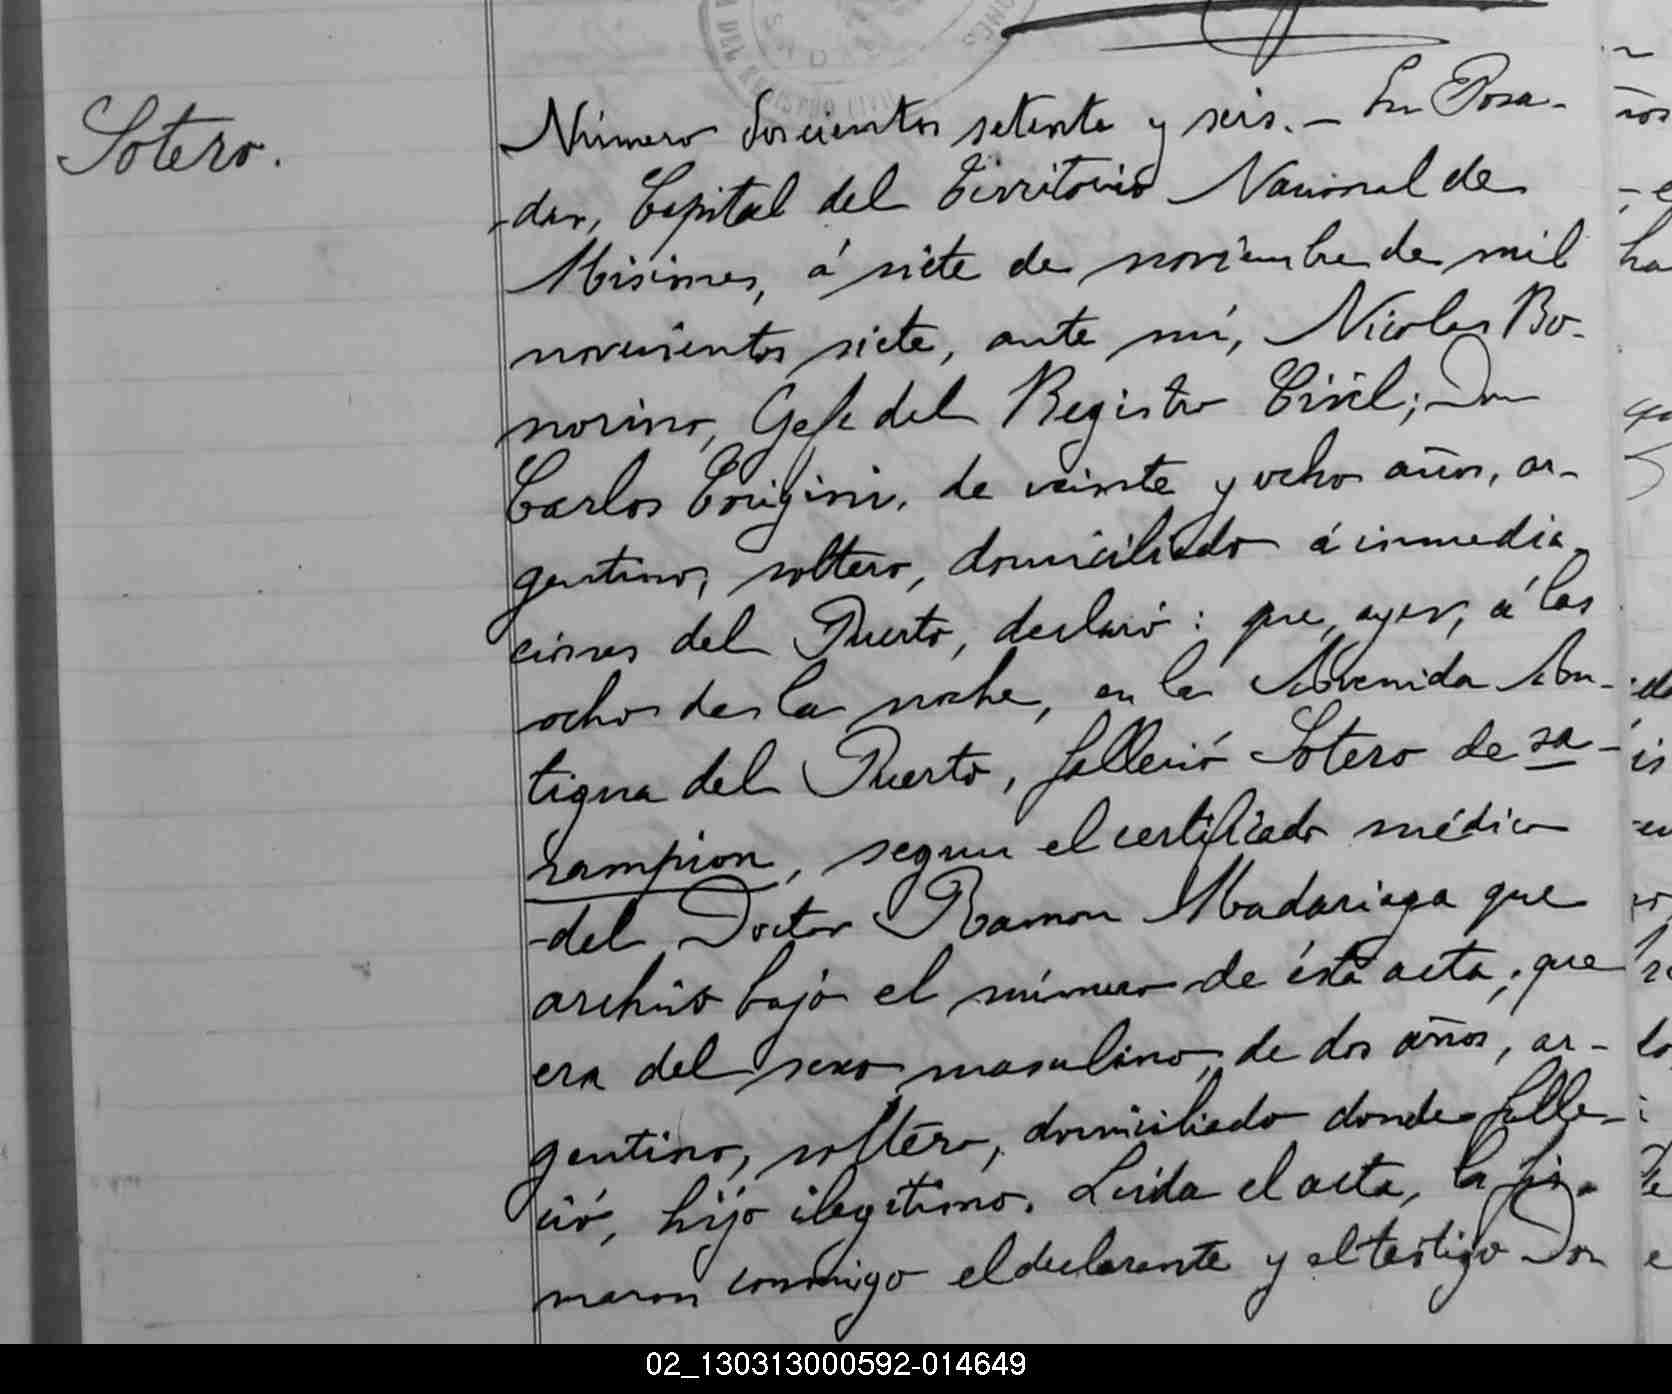 Sotero.
Número doscientos setenta y seis. — En Posa-
das, Capital del Territorio Nacional de
Misiones, á siete de noviembre de mil
novecientos siete, ante mi, Nicolas Bo-
norino, Gefe del Registro Civil; Don
Carlos, de veinte y ocho años, ar-
gentino, soltero, domiciliado á inmedia-
ciones del Puerto, declaró: que, ayer, á las
ocho de la noche, en la Avenida An-
tigua del Puerto, falleció Sotero de sa-
rampion, segun el certificado médico
del Doctor Ramon Madariaga que
archivo bajo el número de ésta acta; que
era del sexo masculino, de dos años, ar-
gentino, soltero, domiciliado donde falle-
ció, hijo ilegítimo. Leida el acta, la fir-
maron conmigo el declarante y el testigo Don
02_130313000592-014649